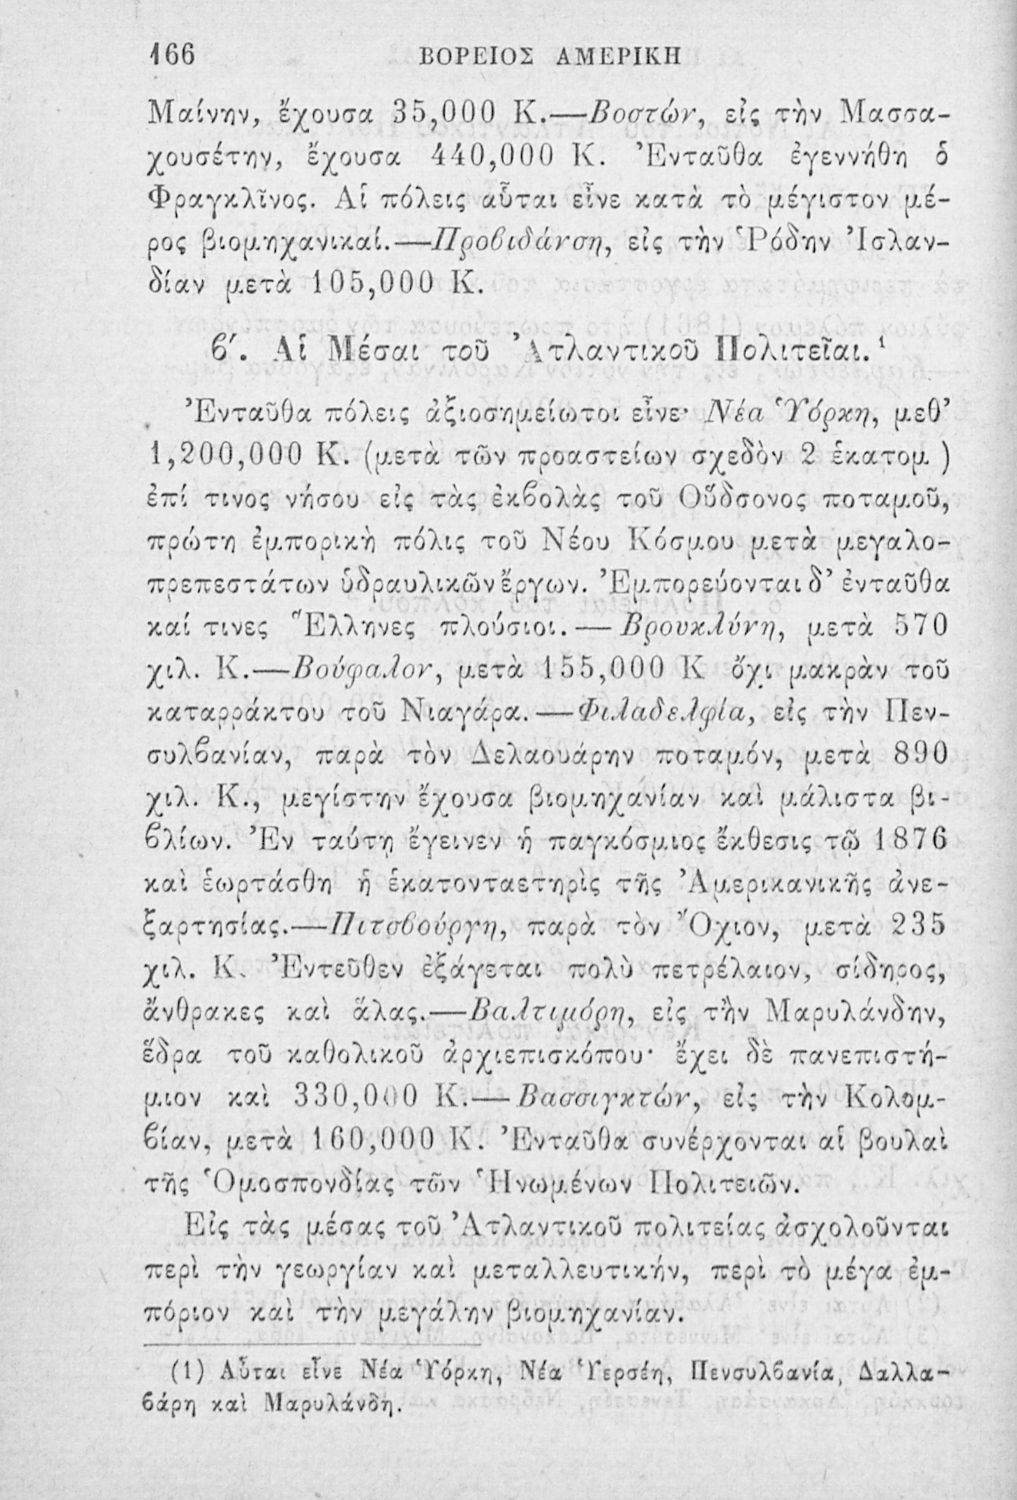 166 ΒΟΡΕΙΟΣ ΑΜΕΡΙΚΗ
Μαίνην, ἔχουσα 35,000 Κ.—Βοστών, εἰς τὴν Μασσα-
χουσέτην, ἔχουσα 440,000 Κ. Ἐνταῦθα ἐγεννήθη ὁ
Φραγκλῖνος. Αἱ πόλεις αὗται εἶνε κατὰ τὸ μέγιστον μέ-
ρος βιομηχανικαί.—Προβιδάνση, εἰς τὴν Ῥόδην Ἰσλαν-
δίαν μετὰ 105,000 Κ.
β΄. Αἱ Μέσαι τοῦ Ἀτλαντικοῦ Πολιτεῖαι.¹
Ἐνταῦθα πόλεις ἀξιοσημείωτοι εἶνε· Νέα Ὑόρκη, μεθ’
1,200,000 Κ. (μετὰ τῶν προαστείων σχεδὸν 2 ἑκατομ )
ἐπί τινος νήσου εἰς τὰς ἐκβολὰς τοῦ Οὕδσονος ποταμοῦ,
πρώτη ἐμπορικὴ πόλις τοῦ Νέου Κόσμου μετὰ μεγαλο-
πρεπεστάτων ὑδραυλικῶν ἔργων. Ἐμπορεύονται δ’ ἐνταῦθα
καί τινες Ἕλληνες πλούσιοι.— Βρουκλύνη, μετὰ 570
χιλ. Κ.—Βούφαλον, μετὰ 155,000 Κ ὄχι μακρὰν τοῦ
καταρράκτου τοῦ Νιαγάρα.—Φιλαδελφία, εἰς τὴν Πεν-
συλβανίαν, παρὰ τὸν Δελαουάρην ποταμόν, μετὰ 890
χιλ. Κ., μεγίστην ἔχουσα βιομηχανίαν καὶ μάλιστα βι-
βλίων. Ἐν ταύτῃ ἔγεινεν ἡ παγκόσμιος ἔκθεσις τῷ 1876
καὶ ἑωρτάσθη ἡ ἑκατονταετηρὶς τῆς Ἀμερικανικῆς ἀνε-
ξαρτησίας.—Πιτσβούργη, παρὰ τὸν Ὄχιον, μετὰ 235
χιλ. Κ. Ἐντεῦθεν ἐξάγεται πολὺ πετρέλαιον, σίδηρος,
ἄνθρακες καὶ ἅλας.—Βαλτιμόρη, εἰς τὴν Μαρυλάνδην,
ἕδρα τοῦ καθολικοῦ ἀρχιεπισκόπου· ἔχει δὲ πανεπιστή-
μιον καὶ 330,000 Κ.—Βασσιγκτών, εἰς τὴν Κολομ-
βίαν, μετὰ 160,000 Κ. Ἐνταῦθα συνέρχονται αἱ βουλαὶ
τῆς Ὁμοσπονδίας τῶν Ἡνωμένων Πολιτειῶν.
Εἰς τὰς μέσας τοῦ Ἀτλαντικοῦ πολιτείας ἀσχολοῦνται
περὶ τὴν γεωργίαν καὶ μεταλλευτικήν, περὶ τὸ μέγα ἐμ-
πόριον καὶ τὴν μεγάλην βιομηχανίαν.
(1) Αὗται εἶνε Νέα Ὑόρκη, Νέα Ὑερσέη, Πενσυλβανία, Δαλλα-
βάρη καὶ Μαρυλάνδη.